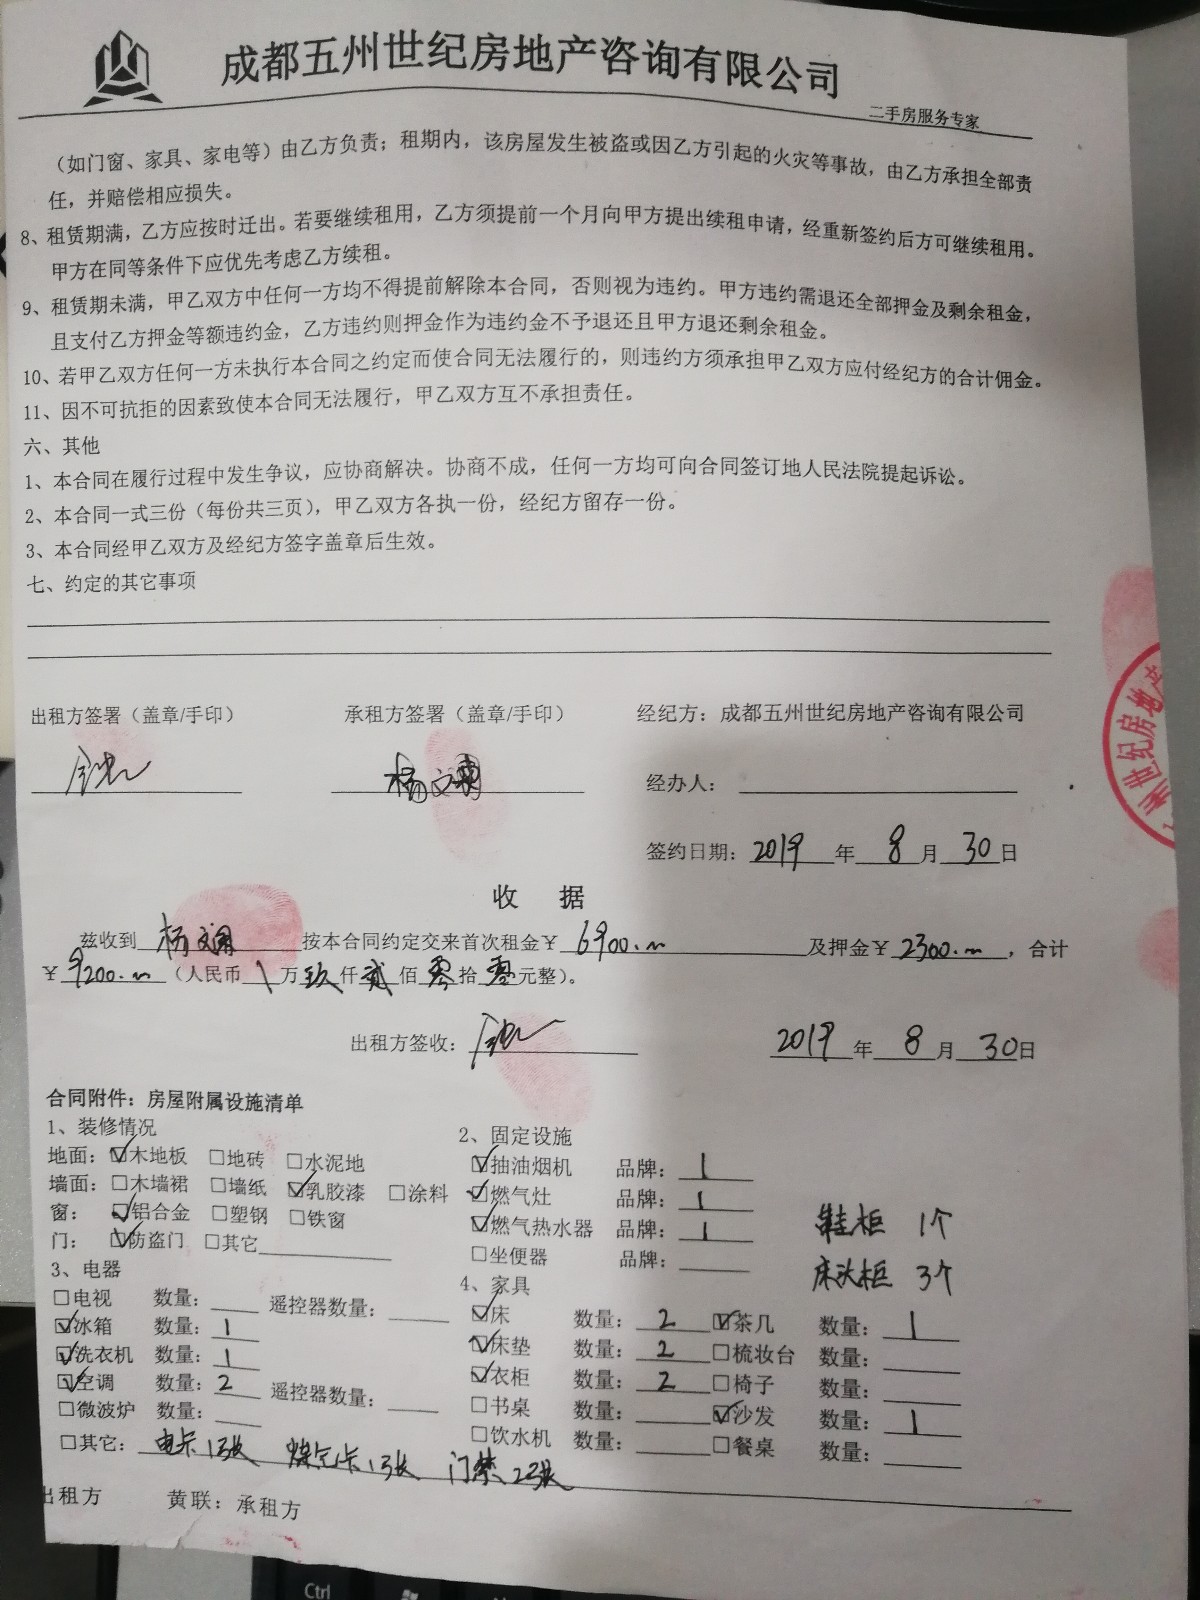 成都五州世纪房地产咨询有限公司
二手房服务专家
（如门窗、家具、家电等）由乙方负责；租期内，该房屋发生被盗或因乙方引起的火灾等事故，由乙方承担全部责
任，并赔偿相应损失。
8、租赁期满，乙方应按时迁出。若要继续租用，乙方须提前一个月向甲方提出续租申请，经重新签约后方可继续租用。
甲方在同等条件下应优先考虑乙方续租。
9、租赁期未满，甲乙双方中任何一方均不得提前解除本合同，否则视为违约。甲方违约需退还全部押金及剩余租金，
且支付乙方押金等额违约金，乙方违约则押金作为违约金不予退还且甲方退还剩余租金。
10、若甲乙双方任何一方未执行本合同之约定而使合同无法履行的，则违约方须承担甲乙双方应付经纪方的合计佣金。
11、因不可抗拒的因素致使本合同无法履行，甲乙双方互不承担责任。
六、其他
1、本合同在履行过程中发生争议，应协商解决。协商不成，任何一方均可向合同签订地人民法院提起诉讼。
2、本合同一式三份（每份共三页），甲乙双方各执一份，经纪方留存一份。
3、本合同经甲乙双方及经纪方签字盖章后生效。
七、约定的其它事项
出租方签署（盖章/手印） 承租方签署（盖章/手印） 经纪方：成都五州世纪房地产咨询有限公司
杨文 经办人：
州世纪房地产
签约日期：2019年 8月 30日
收 据
兹收到 杨文 按本合同约定交来首次租金￥ 6900.00 及押金￥ 2300.00，合计
￥9200.00（人民币 \ 万 玖 仟 贰 佰 零 拾 零 元整）。
出租方签收： 2019年 8月 30日
合同附件：房屋附属设施清单
1、装修情况 2、固定设施
地面：☑木地板 □地砖 □水泥地 ☑抽油烟机 品牌：1
墙面：□木墙裙 □墙纸 ☑乳胶漆 □涂料 ☑燃气灶 品牌：1
窗： ☑铝合金 □塑钢 □铁窗 ☑燃气热水器 品牌：1 鞋柜 1个
门： ☑防盗门 □其它 □坐便器 品牌： 床头柜 3个
3、电器 4、家具
□电视 数量： 遥控器数量： ☑床 数量：2 ☑茶几 数量：1
☑冰箱 数量：1 ☑床垫 数量：2 □梳妆台 数量：
☑洗衣机 数量：1 ☑衣柜 数量：2 □椅子 数量：
☑空调 数量：2 遥控器数量： □书桌 数量： ☑沙发 数量：1
□微波炉 数量： □饮水机 数量： □餐桌 数量：
□其它：电卡1张 煤气卡1张 门禁2张
出租方 黄联：承租方
Ctrl